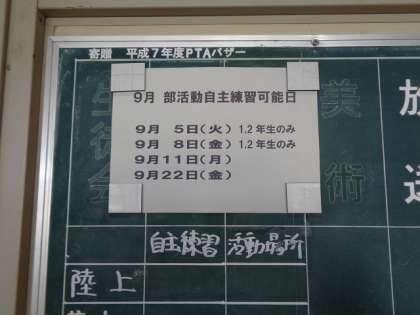 寄贈 平成7年度PTAバザー
9月 部活動自主練習可能日
9月 5日(火) 1.2年生のみ
9月 8日(金) 1.2年生のみ
9月11日(月)
9月22日(金)
生徒会
美術
放送
自主練習 活動場所
陸上